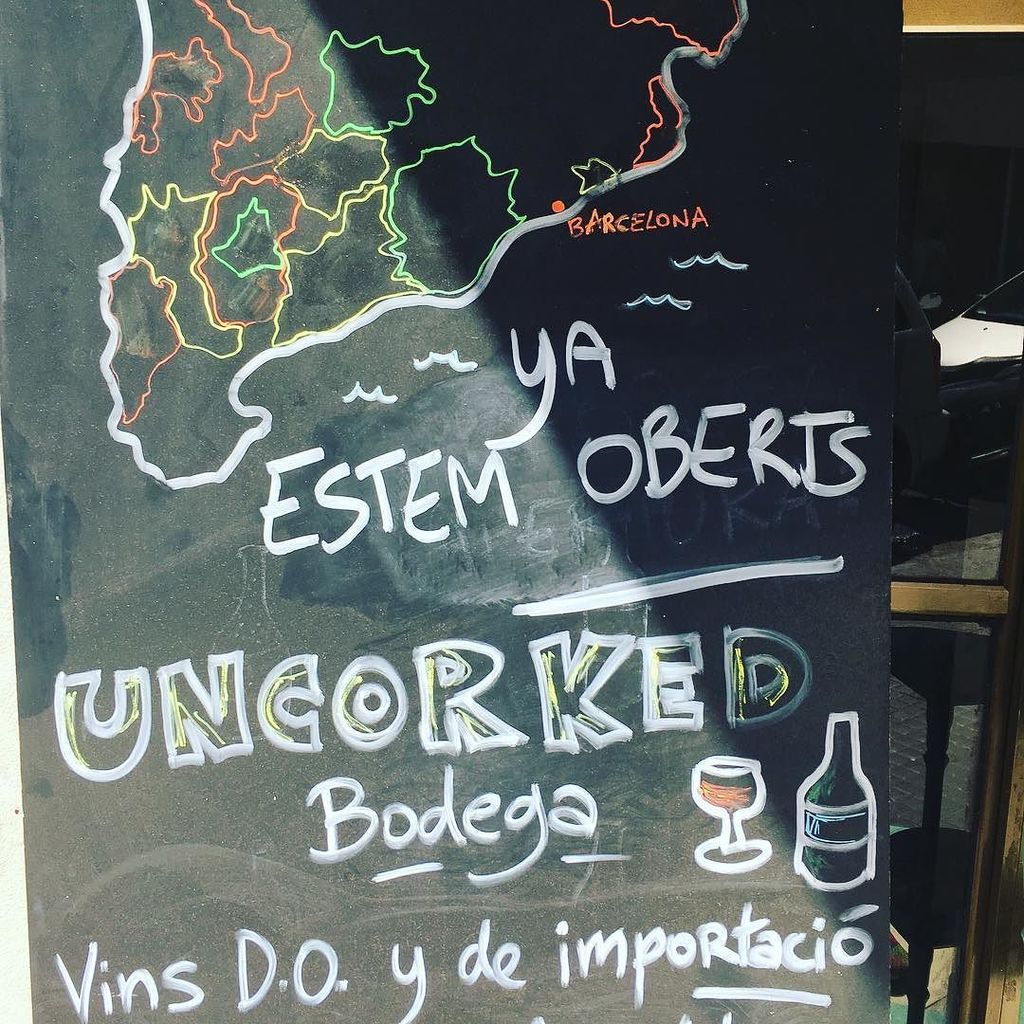 BARCELONA
YA
ESTEM OBERTS
UNCORKED
Bodega
Vins D.O. y de importació